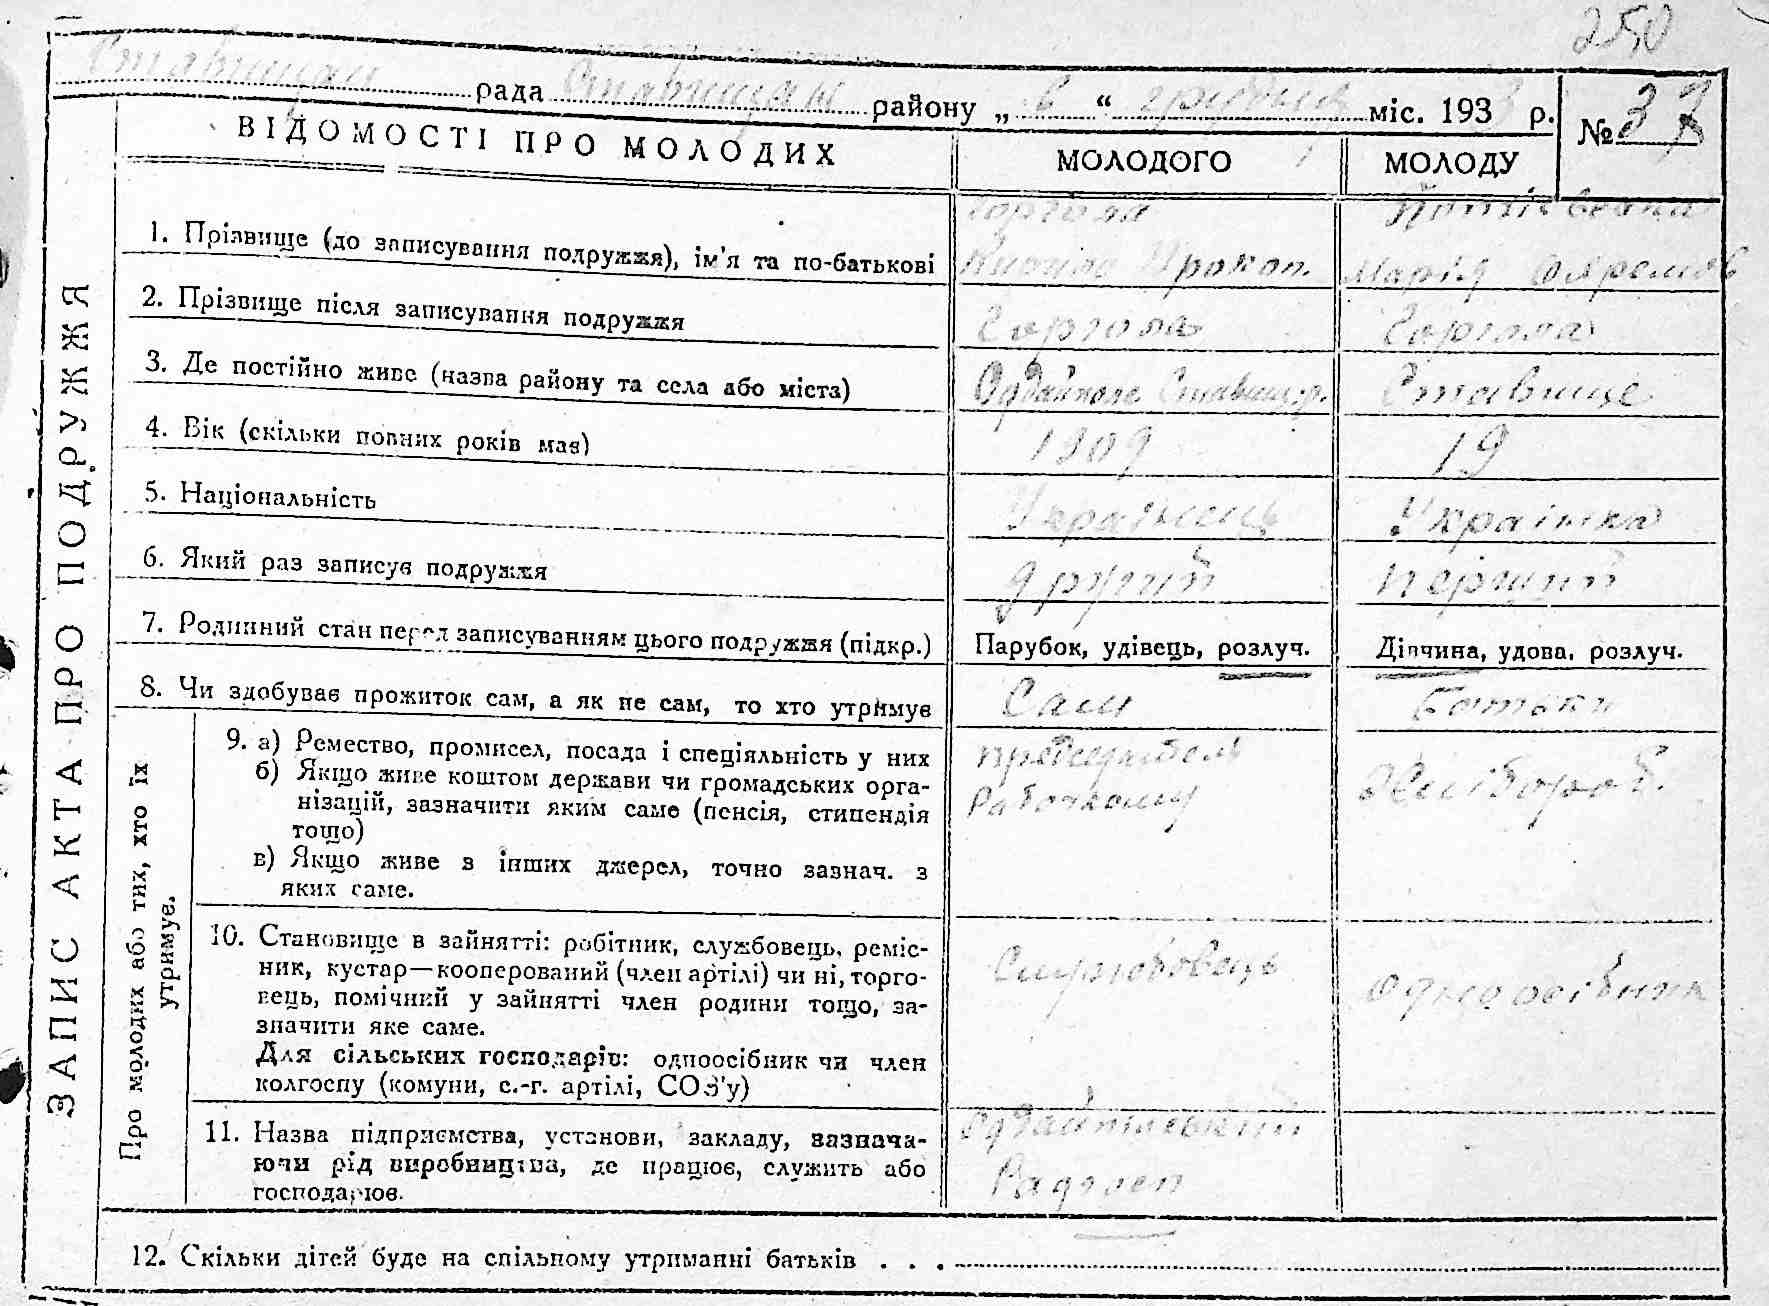 250
Ставищан рада Ставищан району „ 6 “ грудня міс. 1933 р. № 37
ЗАПИС АКТА ПРО ПОДРУЖЖЯ
ВІДОМОСТІ ПРО МОЛОДИХ МОЛОДОГО МОЛОДУ
1. Прізвище (до записування подружжя), ім'я та по-батькові Горгола Прокоп. Марія Охремов
2. Прізвище після записування подружжя Горгола Горгола
3. Де постійно живе (назва району та села або міста) Ставищ.р. Ставище
4. Вік (скільки повних років має) 1909 19
5. Національність Українець Українка
6. Який раз записує подружжя другий перший
7. Родинний стан перед записуванням цього подружжя (підкр.) Парубок, удівець, розлуч. Дівчина, удова, розлуч.
8. Чи здобуває прожиток сам, а як не сам, то хто утримує Сам Батьки
Про молодих або тих, хто їх утримує.
9. а) Ремество, промисел, посада і спеціяльність у них председатель
б) Якщо живе коштом держави чи громадських орга- Рабочкому Хлібороб.
нізацій, зазначити яким саме (пенсія, стипендія
тощо)
в) Якщо живе з інших джерел, точно зазнач. з
яких саме.
10. Становище в зайнятті: робітник, службовець, реміс- Службовець
ник, кустар—кооперований (член артілі) чи ні, торго- одноосібник
вець, помічний у зайнятті член родини тощо, за-
значити яке саме.
Для сільських господарів: одноосібник чи член
колгоспу (комуни, с.-г. артілі, СОЗ'у)
11. Назва підприємства, установи, закладу, зазнача-
ючи рід виробництва, де працює, служить або Радгосп
господарює.
12. Скільки дітей буде на спільному утриманні батьків . . .